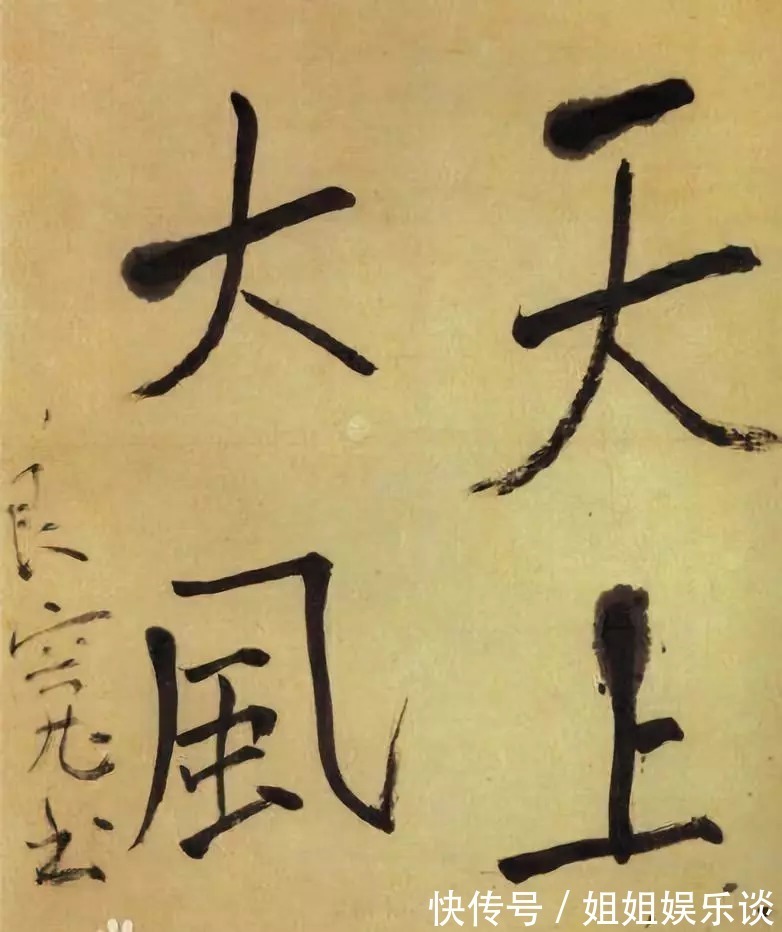 天上
大風
良寛書
快传号 / 姐姐娱乐谈